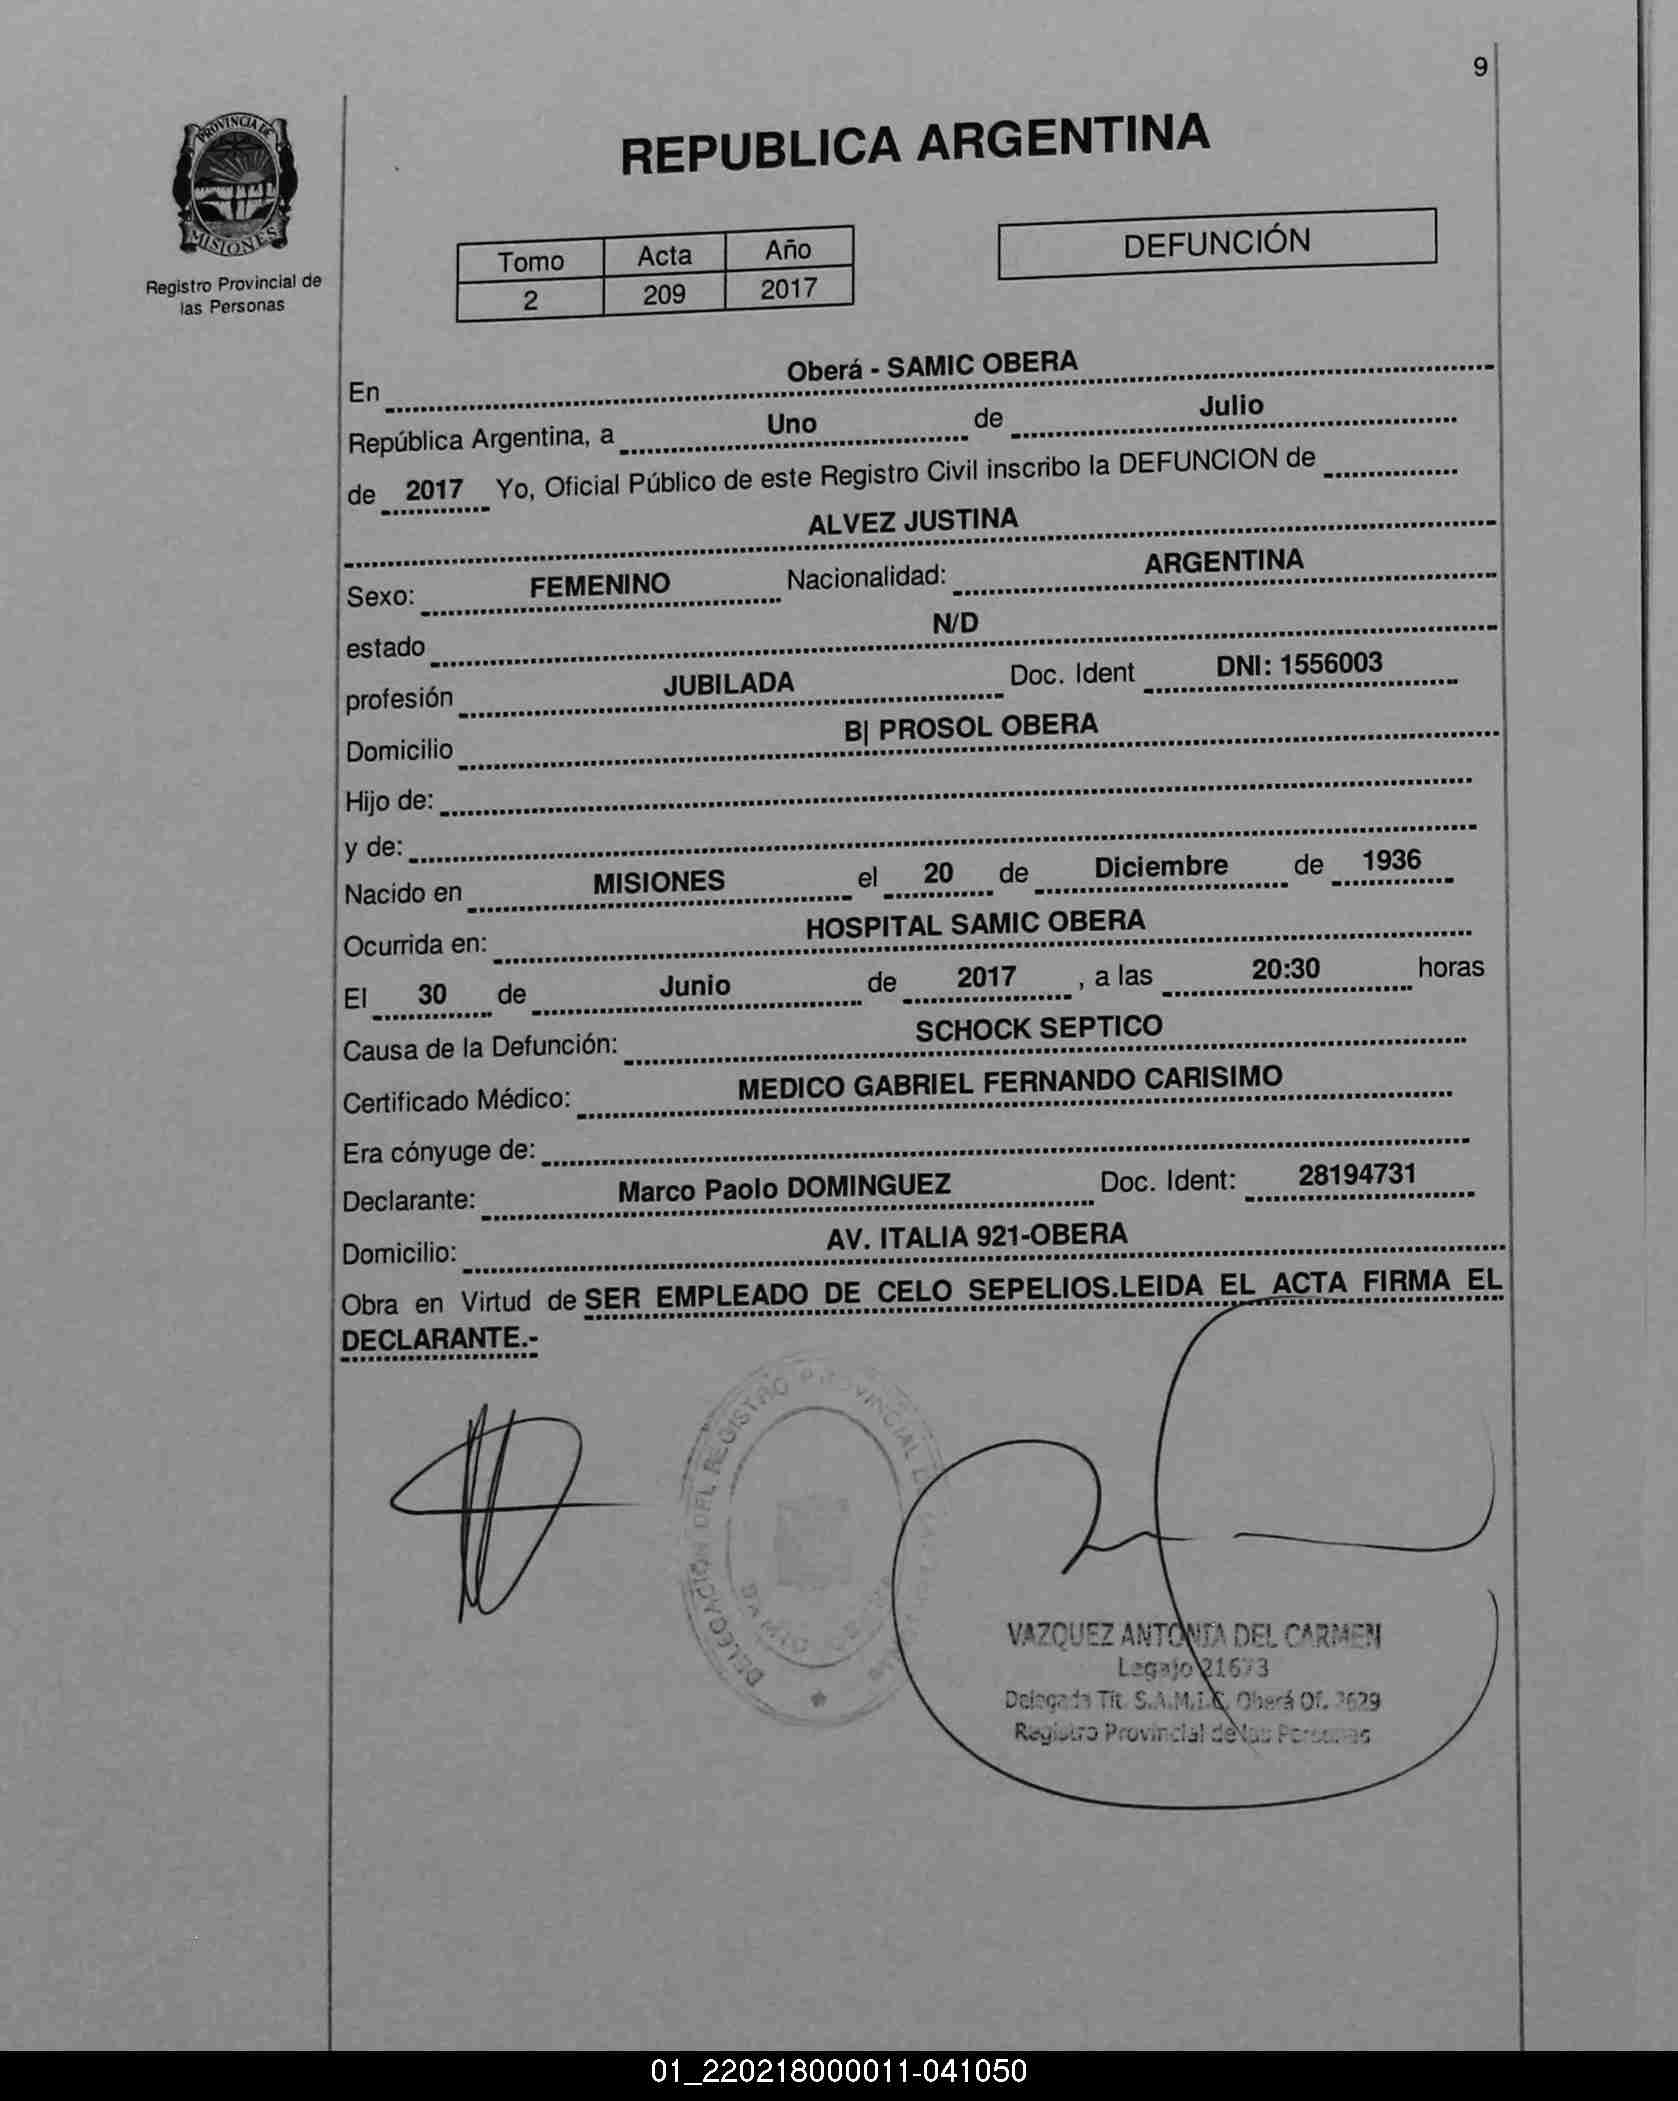 9
PROVINCIA DE
MISIONES
Registro Provincial de
las Personas
REPUBLICA ARGENTINA
Tomo Acta Año
2 209 2017
DEFUNCIÓN
En Oberá - SAMIC OBERA
República Argentina, a Uno de Julio
de 2017 Yo, Oficial Público de este Registro Civil inscribo la DEFUNCION de
ALVEZ JUSTINA
Sexo: FEMENINO Nacionalidad: ARGENTINA
estado N/D
profesión JUBILADA Doc. Ident DNI: 1556003
Domicilio B| PROSOL OBERA
Hijo de:
y de:
Nacido en MISIONES el 20 de Diciembre de 1936
Ocurrida en: HOSPITAL SAMIC OBERA
El 30 de Junio de 2017 , a las 20:30 horas
Causa de la Defunción: SCHOCK SEPTICO
Certificado Médico: MEDICO GABRIEL FERNANDO CARISIMO
Era cónyuge de:
Declarante: Marco Paolo DOMINGUEZ Doc. Ident: 28194731
Domicilio: AV. ITALIA 921-OBERA
Obra en Virtud de SER EMPLEADO DE CELO SEPELIOS.LEIDA EL ACTA FIRMA EL
DECLARANTE.-
DELEGACIÓN DEL REGISTRO PROVINCIAL
VAZQUEZ ANTONIA DEL CARMEN
Legajo 21673
Delegada Tit. S.A.M.I.C. Oberá Of. 2629
Registro Provincial de las Personas
01_220218000011-041050